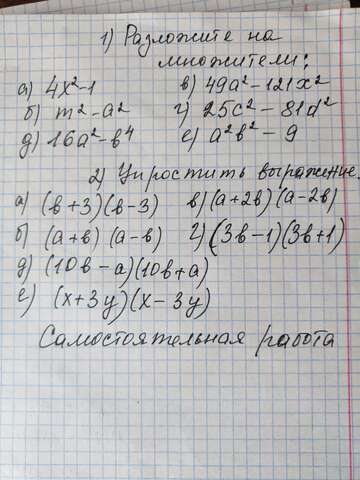 1) Разложите на
множители:
а) 4x²-1 в) 49a²-121x²
б) m²-a² г) 25c²-81d²
д) 16a²-b⁴ е) a²b²-9
2) Упростить выражение.
а) (b+3)(b-3) в) (a+2b)(a-2b)
б) (a+b)(a-b) г) (3b-1)(3b+1)
д) (10b-a)(10b+a)
е) (x+3y)(x-3y)
Самостоятельная работа